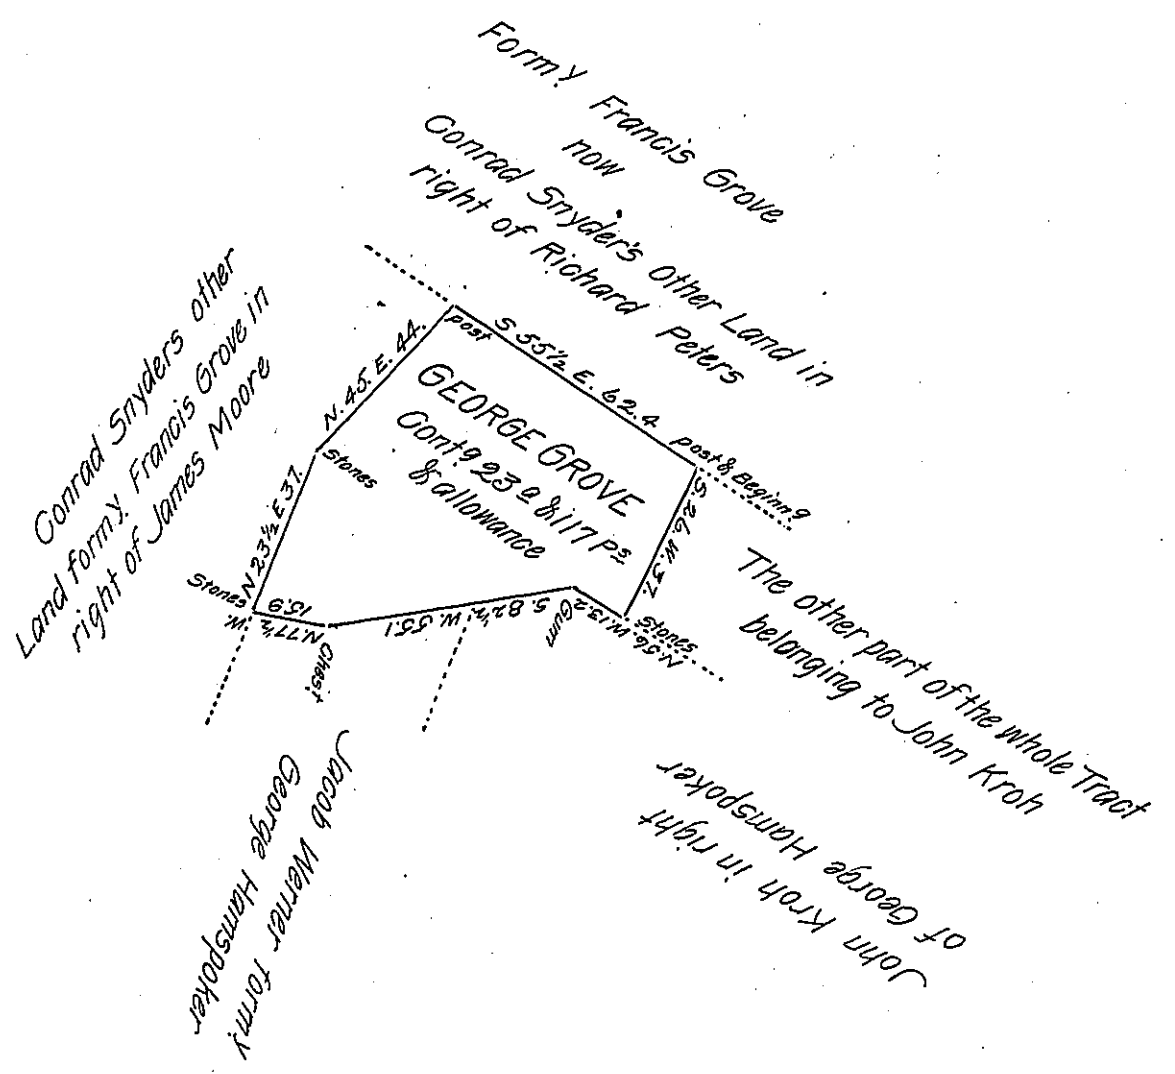 Form.y Francis Grove
now
Conrad Snyder's Other Land in
right of Richard Peters
Conrad Snyders other
Land form.y. Francis Grove in
right of James Moore
post
S 55½ E. 62.4
post & Beginn.g
N. 45. E. 44.
Stones
N 23½ E 37.
Stones
GEORGE GROVE
Cont.g 23 a & 117 Ps
& allowance
S. 26. W. 37.
Stones
N. 56. W. 13.2
Gum
S. 82½. W. 55.1
Ches.t
N. 77½ W.
15.9
The other part of the whole Tract
belonging to John Kroh
John Kroh in right
of George Hamspoker
Jacob Werner formy
George Hamspoker